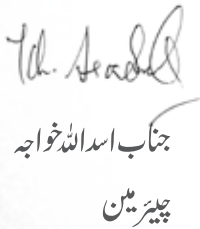 جناب اسد اللہ خواجہ
چیئرمین